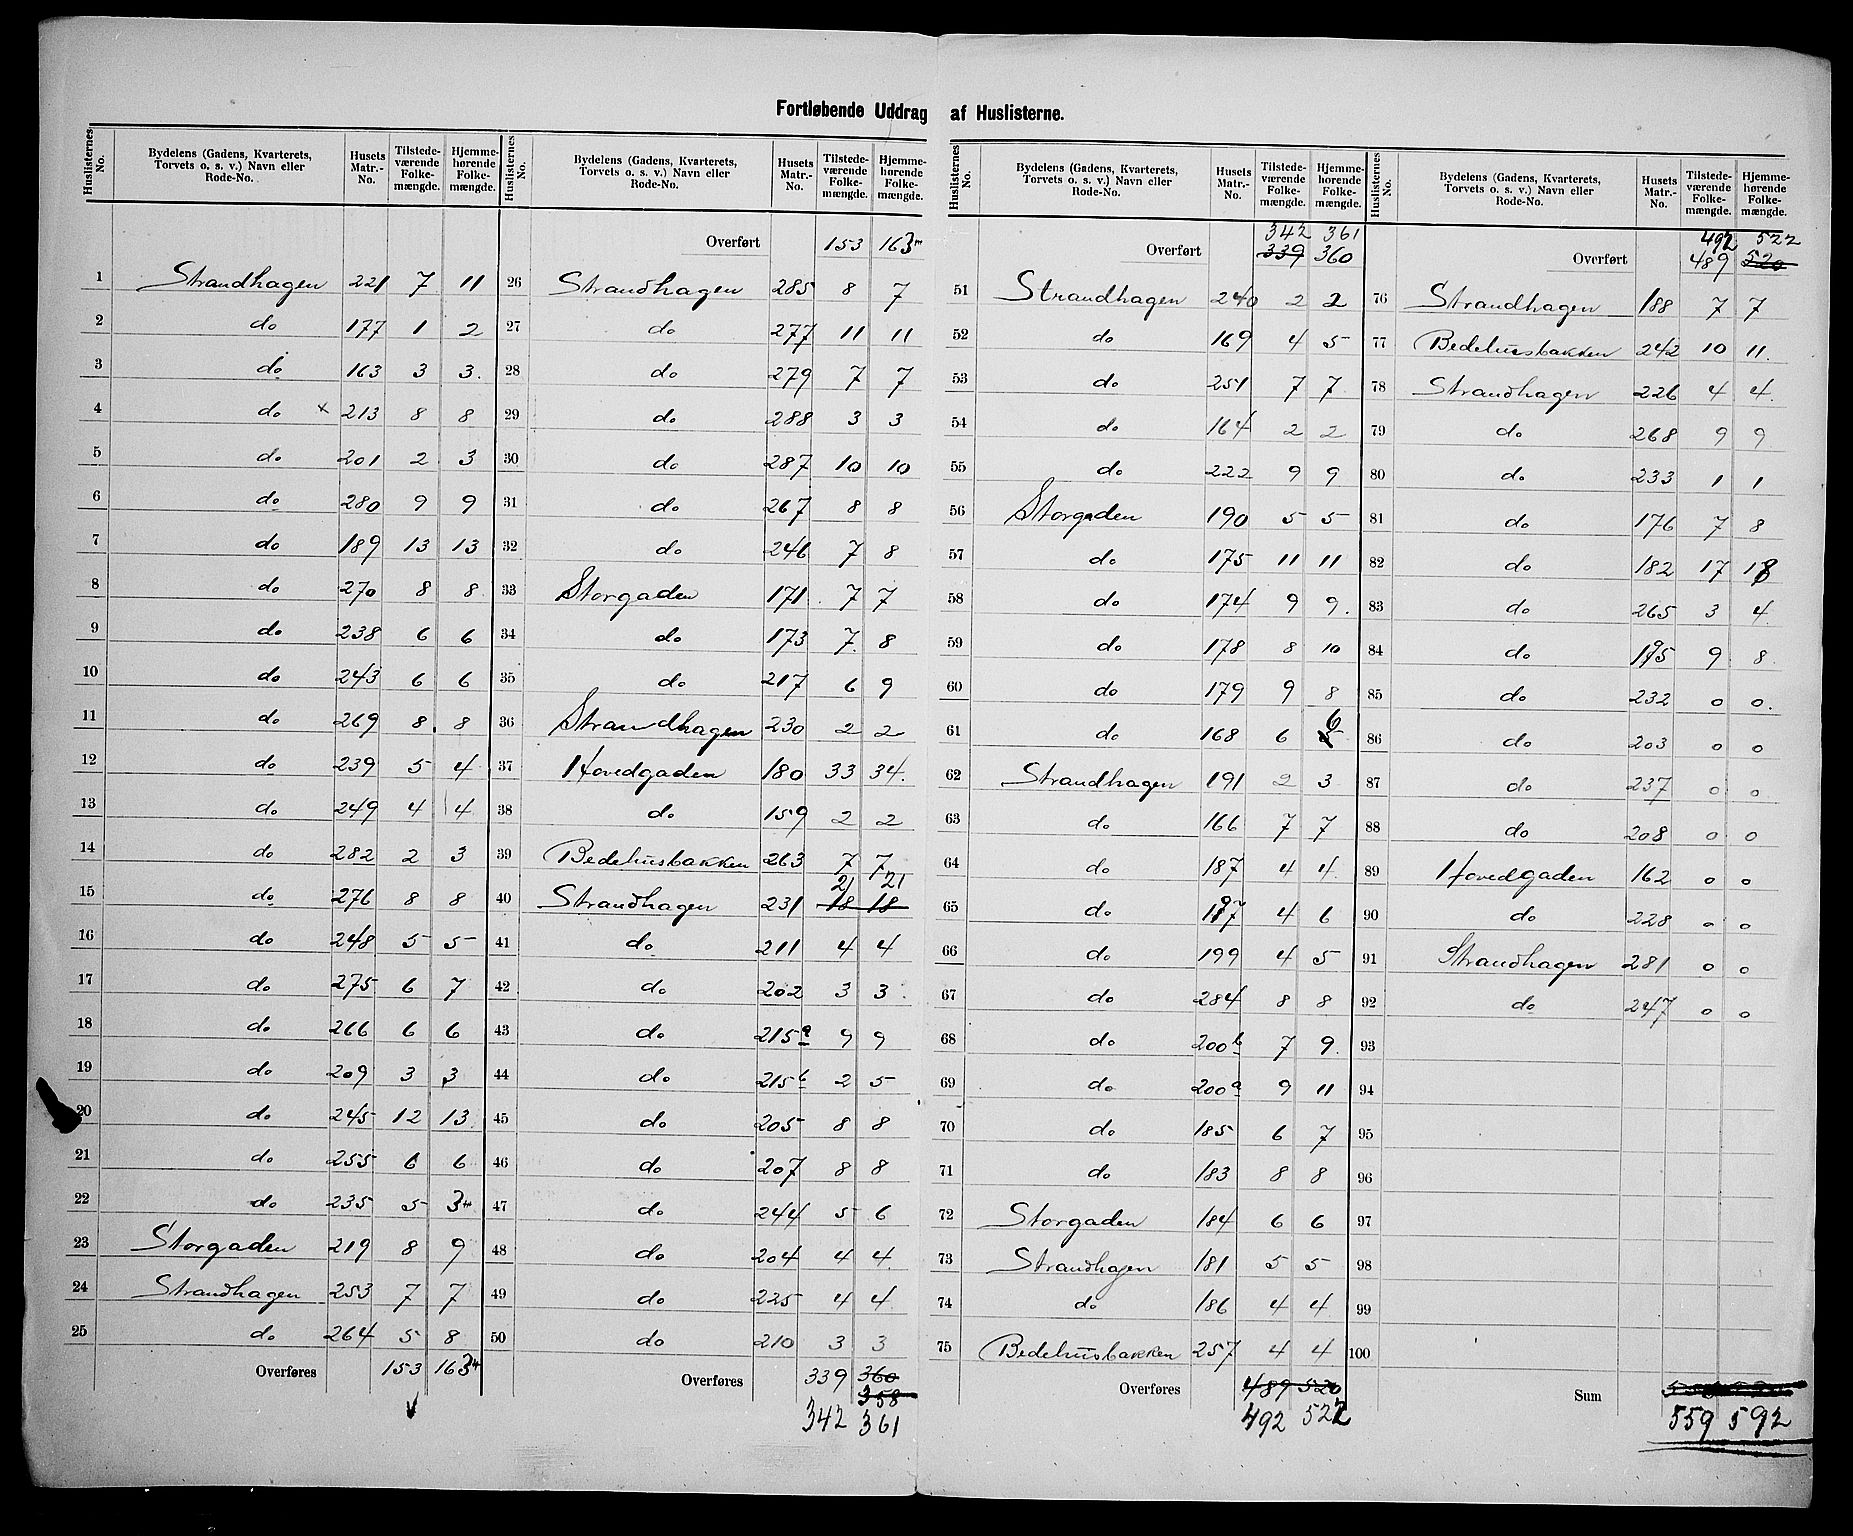 Fortløbende Uddrag af Huslisterne.
Huslisternes No. | Bydelens (Gadens, Kvarterets, Torvets o. s. v.) Navn eller Rode-No. | Husets Matr.-No. | Tilstedeværende Folkemængde. | Hjemmehørende Folkemængde.
1 Strandhagen 221 7 11
2 do 177 1 2
3 do 163 3 3.
4 do × 213 8 8
5 do 201 2 3
6 do 280 9 9
7 do 189 13 13
8 do 270 8 8
9 do 238 6 6
10 do 243 6 6
11 do 269 8 8
12 do 239 5 4
13 do 249 4 4
14 do 282 2 3
15 do 276 8 8
16 do 248 5 5
17 do 275 6 7
18 do 266 6 6
19 do 209 3 3
20 do 245 12 13
21 do 255 6 6
22 do 235 5 3
23 Storgaden 219 8 9
24 Strandhagen 253 7 7
25 do 264 5 8
Overføres 153 163
Huslisternes No. | Bydelens (Gadens, Kvarterets, Torvets o. s. v.) Navn eller Rode-No. | Husets Matr.-No. | Tilstedeværende Folkemængde. | Hjemmehørende Folkemængde.
Overført 153 163
26 Strandhagen 285 8 7
27 do 277 11 11
28 do 279 7 7
29 do 288 3 3
30 do 287 10 10
31 do 267 8 8
32 do 246 7 8
33 Storgaden 171 7 7
34 do 173 7 8
35 do 217 6 9
36 Strandhagen 230 2 2
37 Hovedgaden 180 33 34.
38 do 159 2 2
39 Bedehusbakken 263 7 7
21 21
40 Strandhagen 231 18 18
41 do 211 4 4
42 do 202 3 3.
43 do 215a 9 9
44 do 215b 2 5
45 do 205 8 8
46 do 207 8 8
47 do 244 5 6
48 do 204 4 4
49 do 225 4 4
50 do 210 3 3
Overføres 339 360
358
342 361
Huslisternes No. | Bydelens (Gadens, Kvarterets, Torvets o. s. v.) Navn eller Rode-No. | Husets Matr.-No. | Tilstedeværende Folkemængde. | Hjemmehørende Folkemængde.
342 361
Overført 339 360
51 Strandhagen 240 2 2
52 do 169 4 5
53 do 251 7 7
54 do 164 2 2
55 do 222 9 9
56 Storgaden 190 5 5
57 do 175 11 11
58 do 174 9 9.
59 do 178 8 10
60 do 179 9 8
61 do 168 6 6
62 Strandhagen 191 2 3
63 do 166 7 7
64 do 187 4 4
65 do 197 4 6
66 do 199 4 5
67 do 284 8 8
68 do 200b 7 9.
69 do 200a 9 11
70 do 185 6 7
71 do 183 8 8
72 Storgaden 184 6 6
73 Strandhagen 181 5 5
74 do 186 4 4
75 Bedehusbakken 257 4 4
Overføres 489 520
492 522
Huslisternes No. | Bydelens (Gadens, Kvarterets, Torvets o. s. v.) Navn eller Rode-No. | Husets Matr.-No. | Tilstedeværende Folkemængde. | Hjemmehørende Folkemængde.
492 522
Overført 489 520
76 Strandhagen 188 7 7
77 Bedehusbakken 242 10 11.
78 Strandhagen 226 4 4.
79 do 268 9 9
80 do 233 1 1
81 do 176 7 8
82 do 182 17 18
83 do 265 3 4
84 do 195 9 8
85 do 232 0 0.
86 do 203 0 0
87 do 237 0 0
88 do 208 0 0
89 Hovedgaden 162 0 0
90 do 228 0 0
91 Strandhagen 281 0 0
92 do 247 0 0
93
94
95
96
97
98
99
100
Sum
559 592